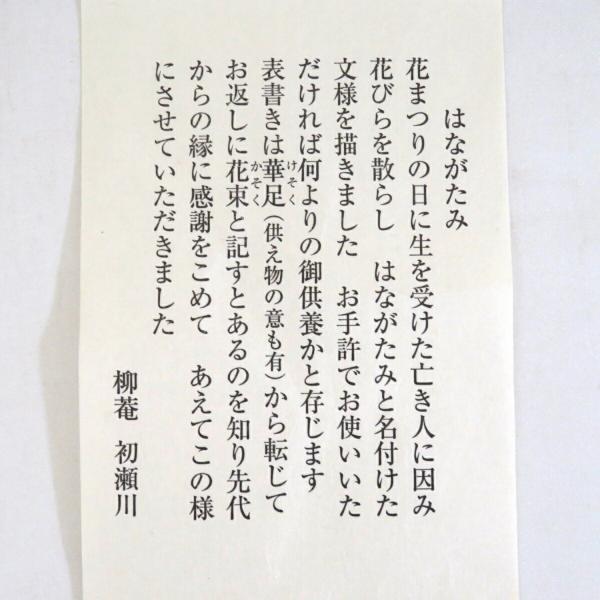 はながたみ
花まつりの日に生を受けた亡き人に因み
花びらを散らし　はながたみと名付けた
文様を描きました　お手許でお使いいた
だければ何よりの御供養かと存じます
表書きは華足（供え物の意も有）から転じて
けそく
お返しに花束と記すとあるのを知り先代
かそく
からの縁に感謝をこめて　あえてこの様
にさせていただきました
柳菴　初瀬川